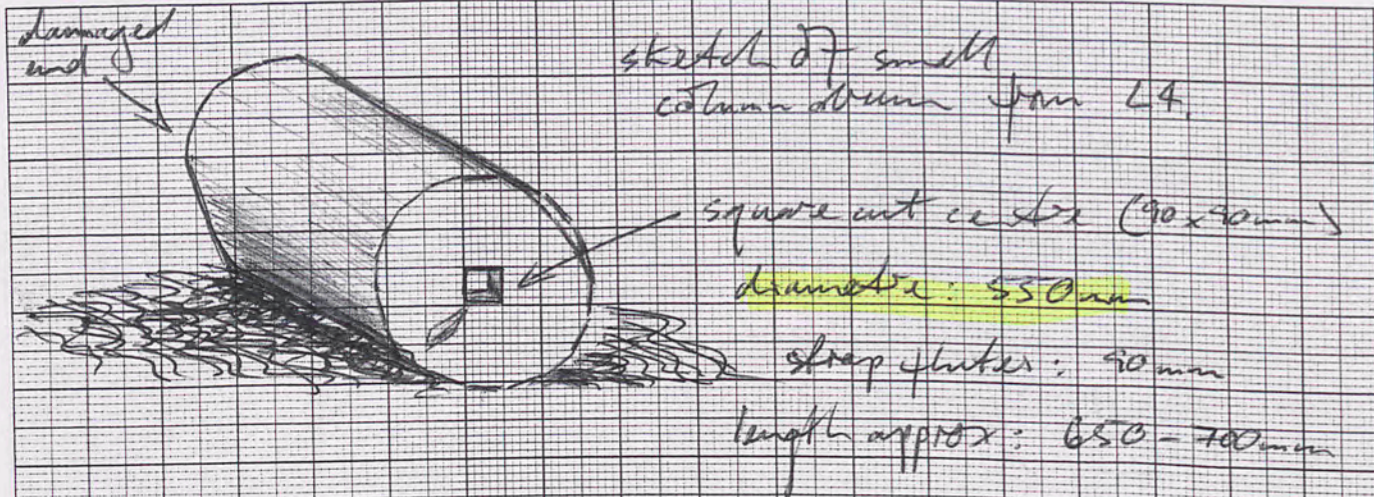 damaged
end
sketch of small
column drum from L4.
square cut centre (90x90mm)
diametre: 550mm
strap flutes: 90mm
length approx: 650-700mm